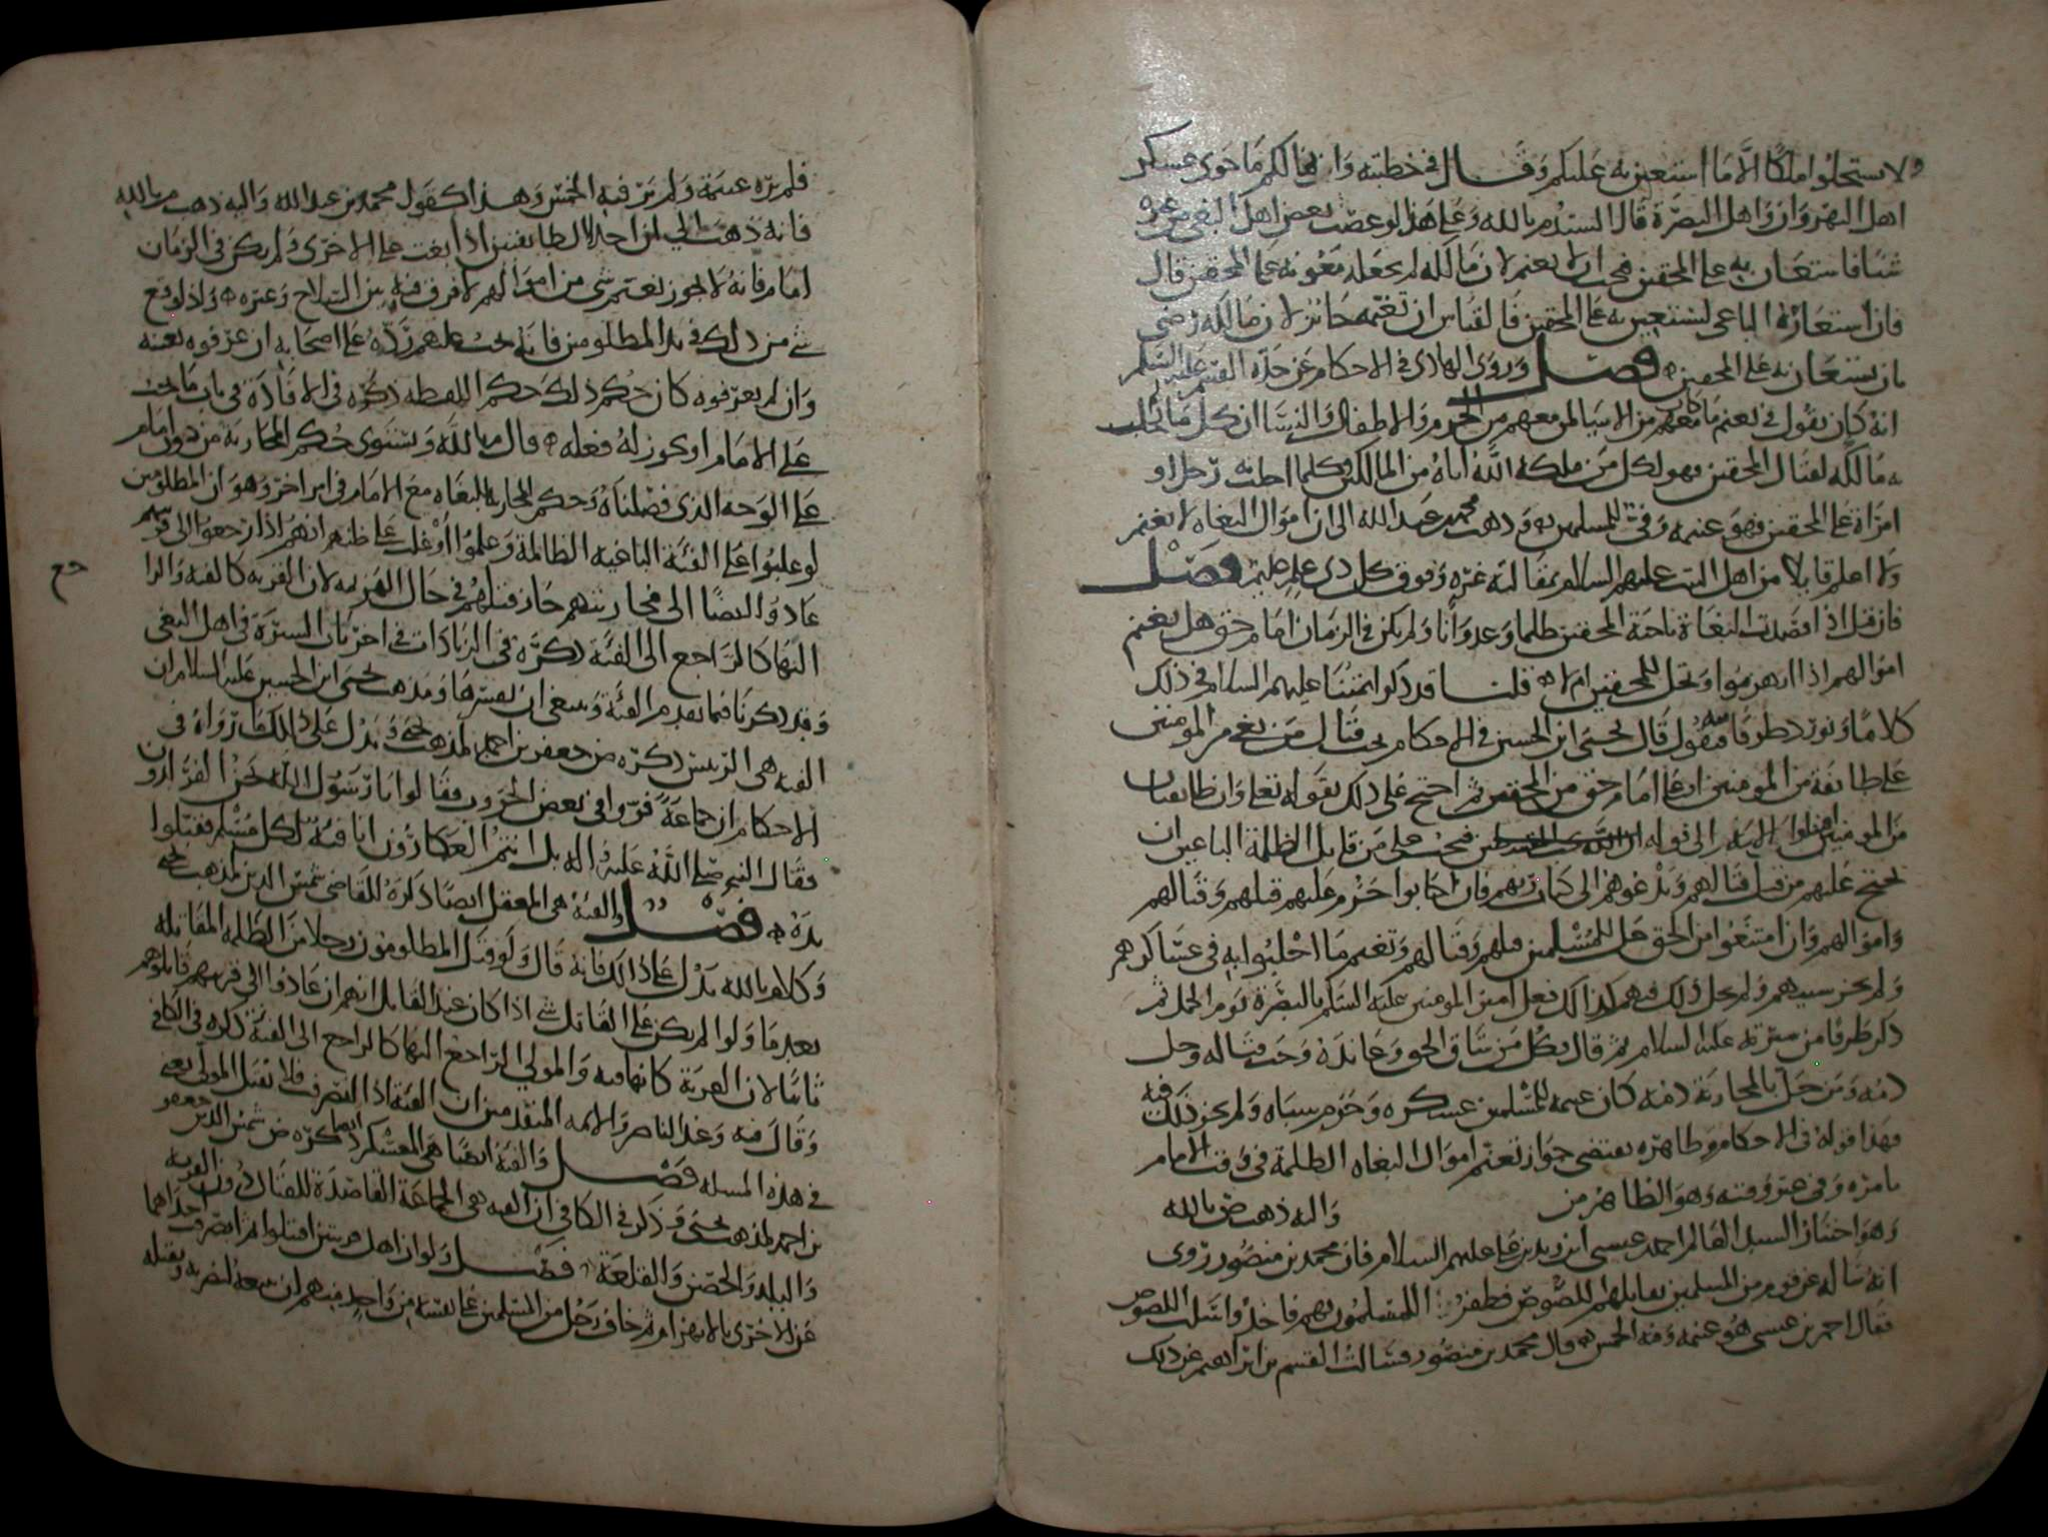 ولا تستحلوا ملكا الا ما استعين به عليكم وقال في خطبته وان لكم ما حوى عسكر
اهل النهروان واهل البصرة قال السيد م بالله وعلى هذا لو غصب بعض اهل البغي من غيره
شيا فاستعان به على المحقين فيجب ان لا يغنم لان مالكه لم يجعله معونة على المحقين قال
فان استعاره الباغي ليستعين به على المحقين فالقياس ان تغنمه جائز لان مالكه رضي
بان يستعان به على المحقين فصل وروى الهادي في الاحكام عن جده القسم عليه السلم
انه كان يقول في تغنم ما كان معهم من الاشيا لمن معهم من الحرم والاطفال والنسا ان كل ما اجلب
به مالكه لقتال المحقين فهو لكل من ملكه الله اياه من المالكين وكلما اجلب به رجل او
امراة على المحقين فهو غنيمه وفي للمسلمين وذهب محمد عبد الله الى ان اموال البغاه لا يغنم
ولا اعلم قايلا من اهل البيت عليهم السلام بمقالته غيره وفوق كل ذي علم عليم فصل
فان قيل اذا قصدت البغاة ناحية المحقين ظلما وعدوانا ولم يكن في الزمان امام حق هل يغنم
اموالهم اذا انهزموا وتحل للمحقين ام لا قلنا قد ذكر ائمتنا عليهم السلام في ذلك
كلاما ونورد طرفا منه فنقول قال يحيى ابن الحسين في الاحكام يجب قتال من بغى من المومنين
على طايفة من المومنين او على امام حق من المحقين ثم احتج على ذلك بقوله تعلى وان طايفتان
من المومنين اقتتلوا الايه الى قوله فيجب على من قاتل الظلمة الباغين ان
يحتج عليهم من قبل قتالهم ويدعوهم الى كتاب ربهم فان اجابوا حرم عليهم قتلهم وقتالهم
واموالهم وان امتنعوا من الحق حل للمسلمين قتلهم وقتالهم وتغنم ما اجلبوا به في عساكرهم
ولم يجز سبيهم ولم يحل ذلك فيهم كذلك فعل امير المومنين عليه السلم بالبصرة يوم الجمل ثم
ذكر طرفا من سيرته عليه السلام ثم قال فكل من شاق الحق وعانده وجب قتاله وحل
دمه ومن حل بالمحاربة دمه كان غنيمه للمسلمين عسكره وحرم سباه ولم يجز ذلك فيه
فهذا قوله في الاحكام وظاهره يقتضي جواز تغنم اموال البغاه الظلمة في وقت الامام
بامره وفي غير وقته وهو الظاهر من واليه ذهب ض بالله
وهو اختيار السيد العالم احمد عيسى ابن زيد بن علي عليهم السلام فان محمد بن منصور روى
انه ساله عن قوم من المسلمين يقاتلهم اللصوص فظفر المسلمون بهم فاخذوا سلب اللصوص
فقال احمد بن عيسى هو غنيمه وفيه الخمس قال محمد بن منصور وسالت القسم بن ابراهيم عن ذلك
فلم يره غنيمة ولم ير فيه الخمس وهذا كقول محمد بن عبد الله واليه ذهب م بالله
فانه ذهب الى ان احد الطايفتين اذا بغت على الاخرى ولم يكن في الزمان
امام فانه لا يجوز تغنم شي من اموالهم لا فرق فيه بين السلاح وغيره واذا وقع
شي من ذلك في يد المظلومين فانه يجب عليهم رده على اصحابه ان عرفوه بعينه
وان لم يعرفوه كان حكم ذلك حكم اللقطه ذكره في الافادة في باب ما يجب
على الامام او يجوز له فعله قال م بالله ويستوي حكم المحاربة من دون امام
على الوجه الذي فصلناه وحكم المحاربه للبغاه مع الامام في امر اخر وهو ان المظلومين
لو غلبوا على الفئة الباغية الظالمة وعلموا او غلب على ظنهم انهم اذا رجعوا الى قريتهم
عادوا ايضا الى محاربتهم جاز قتلهم في حال الهزيمه لان القريه كالفئه والرا
جع
اليها كالراجع الى الفئة ذكره في الزيادات في اخر باب السيرة في اهل البغي
وقد ذكرنا فيما تقدم الفئة وينبغي ان نفسرها ومذهب يحيى ابن الحسين عليه السلام ان
الفئه هي الرئيس ذكره ض جعفر بن احمد لمذهب يحيى ويدل على ذلك ما رواه في
الاحكام ان جماعة فروا في بعض الحروب فقالوا يا رسول الله نحن الفرارون
فقال النبي صلى الله عليه واله بل انتم العكارون انا فئة لكل مسلم فقبلوا
يده فصل والفئه هي المعقل ايضا ذكره القاضي شمس الدين لمذهب يحيى
وكلام م بالله يدل على ذلك فانه قال ولو قتل المظلومون رجلا من الظلمه المقاتله
بعد ما ولوا لم يكن على القاتل شي اذا كان عند القاتل انهم ان عادوا الى قريتهم قاتلوهم
ثانيا لان القرية كانها فيه والمولي الراجع اليها كالراجع الى الفئة ذكره في الكافي
وقال فيه وعند الناصر والايمه المتقدمين ان الفئة اذا لم تصرف فلا يقتل المولي يعني
في هذه المسله فصل والفئة ايضا هي العسكر ذكره ايضا ض شمس الدين جعفر
بن احمد لمذهب يحيى وذكر في الكافي ان الفئه هي الجماعة القاصدة للقتال دون القرية
والبلد والحصن والقلعة فصل ولو ان اهل قريتين اقتتلوا ثم انصرفت احداهما
عن الاخرى بالانهزام ثم خاف رجل من المسلمين على نفسه من واحد منهم ان يتبعه لضربه ويقتله